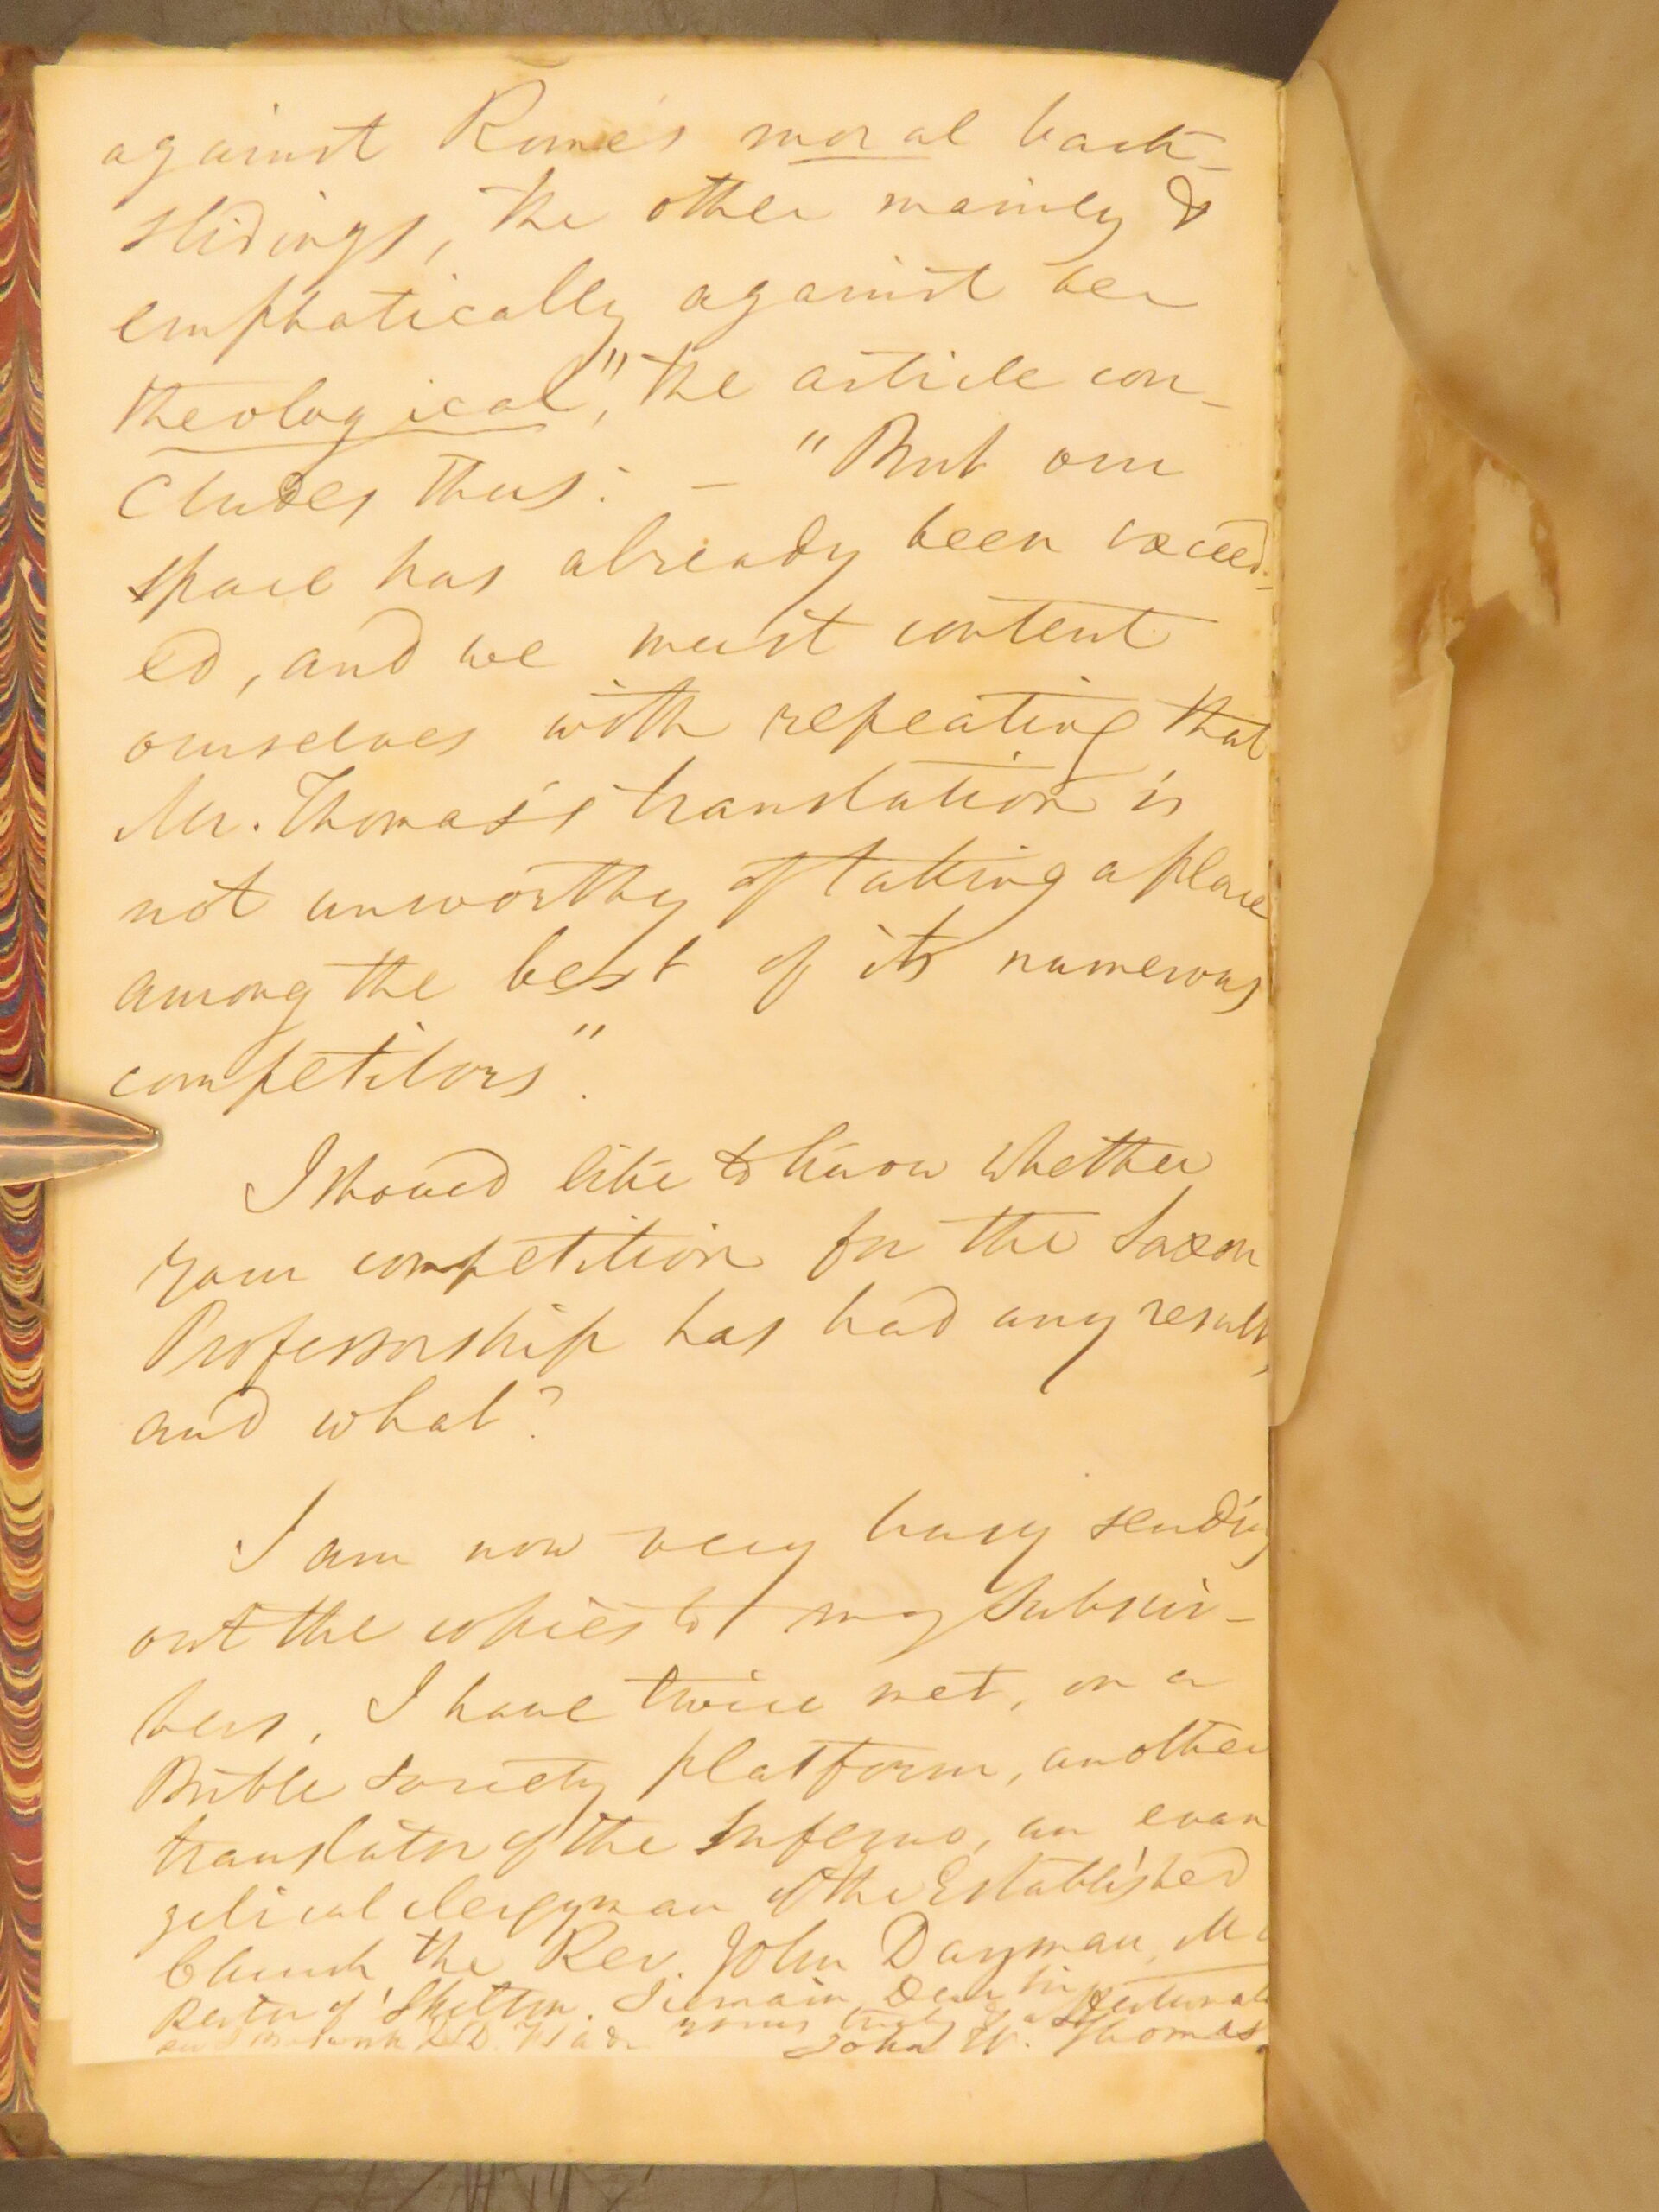 against Rome's moral back-
slidings, the other mainly &
emphatically against her
theological", the article con-
cludes thus: — "But our
space has already been exceed-
ed, and we must content
ourselves with repeating that
Mr. Thomas's translation is
not unworthy of taking a place
among the best of its numerous
competitors".
I should like to know whether
your competition for the Saxon
Professorship has had any result,
and what?
I am now very busy sending
out the copies to my Subscri-
bers. I have twice met, on a
Bible Society platform, another
translator of the Inferno, an evan
gelical clergyman of the Established
Church, the Rev. John Dayman, M
Rector of Skelton. I remain, Dear Sir,
yours truly &
John W. Thomas